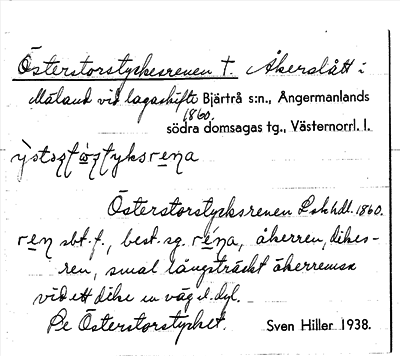 Österstorstyckesrenen †. Åkerslått i
Måland vid lagaskifte Bjärtrå s:n., Ångermanlands
1860.
södra domsagas tg., Västernorrl. l.
Österstorstycksrenen Lskhdl. 1860.
ren sbt. f., best. sg. réna, åkerren, dikes-
ren, smal långsträckt åkerremsa
vid ett dike en väg el. dyl.
Be Österstorstycket. Sven Hiller 1938.